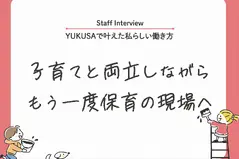 Staff Interview
YUKUSAで叶えた私らしい働き方
子育てと両立しながら
もう一度保育の現場へ